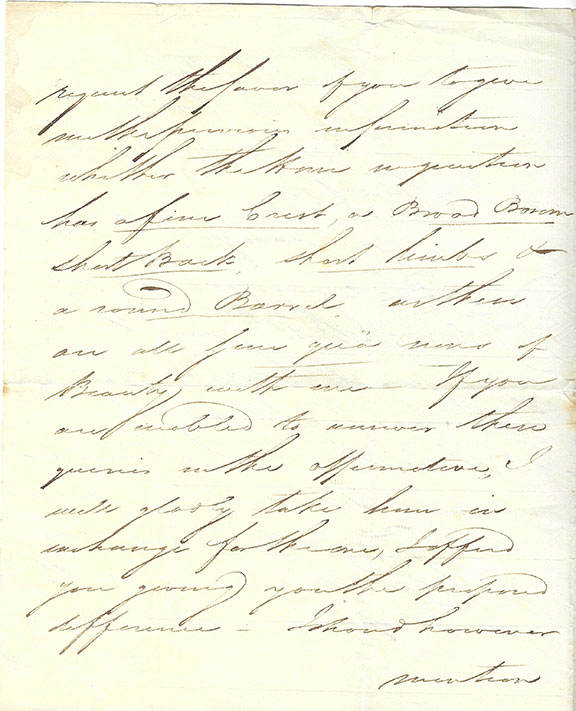 request the favor of you to give
me the previous information
whether the Horse in question
has a fine Crest, a Broad Bosom
short Back, short limbs &
a round Barrel, as these
are all sine quâ nons of
Beauty with me - If you
are enabled to answer these
queries in the affirmative, I
will gladly take him in
exchange for the one, I offered
you giving you the proposed
difference - I should however
mention